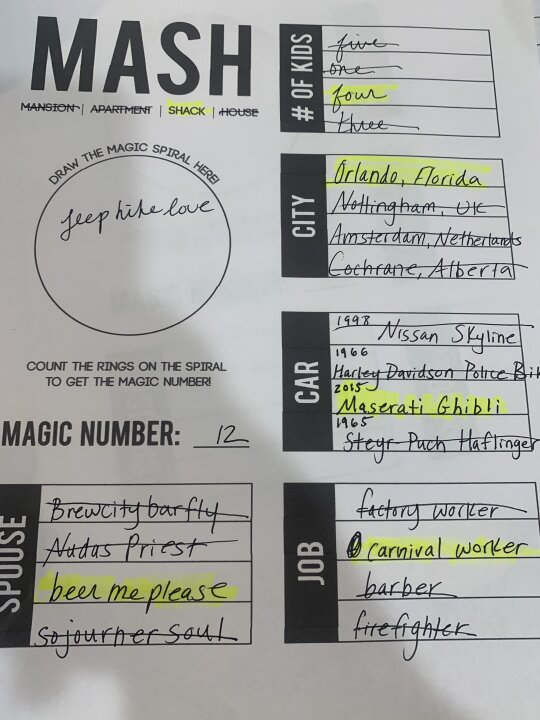 MASH
MANSION | APARTMENT | SHACK | HOUSE
DRAW THE MAGIC SPIRAL HERE!
jeep hike love
COUNT THE RINGS ON THE SPIRAL
TO GET THE MAGIC NUMBER!
MAGIC NUMBER: 12
# OF KIDS
five
one
four
three
CITY
Orlando, Florida
Nottingham, UK
Amsterdam, Netherlands
Cochrane, Alberta
CAR
1998
Nissan Skyline
1966
Harley Davidson Police
2015
Maserati Ghibli
1965
Steyr-Puch Haflinger
SPOUSE
Brewcity barfly
Nudas Priest
beer me please
sojourner soul
JOB
factory worker
carnival worker
barber
firefighter